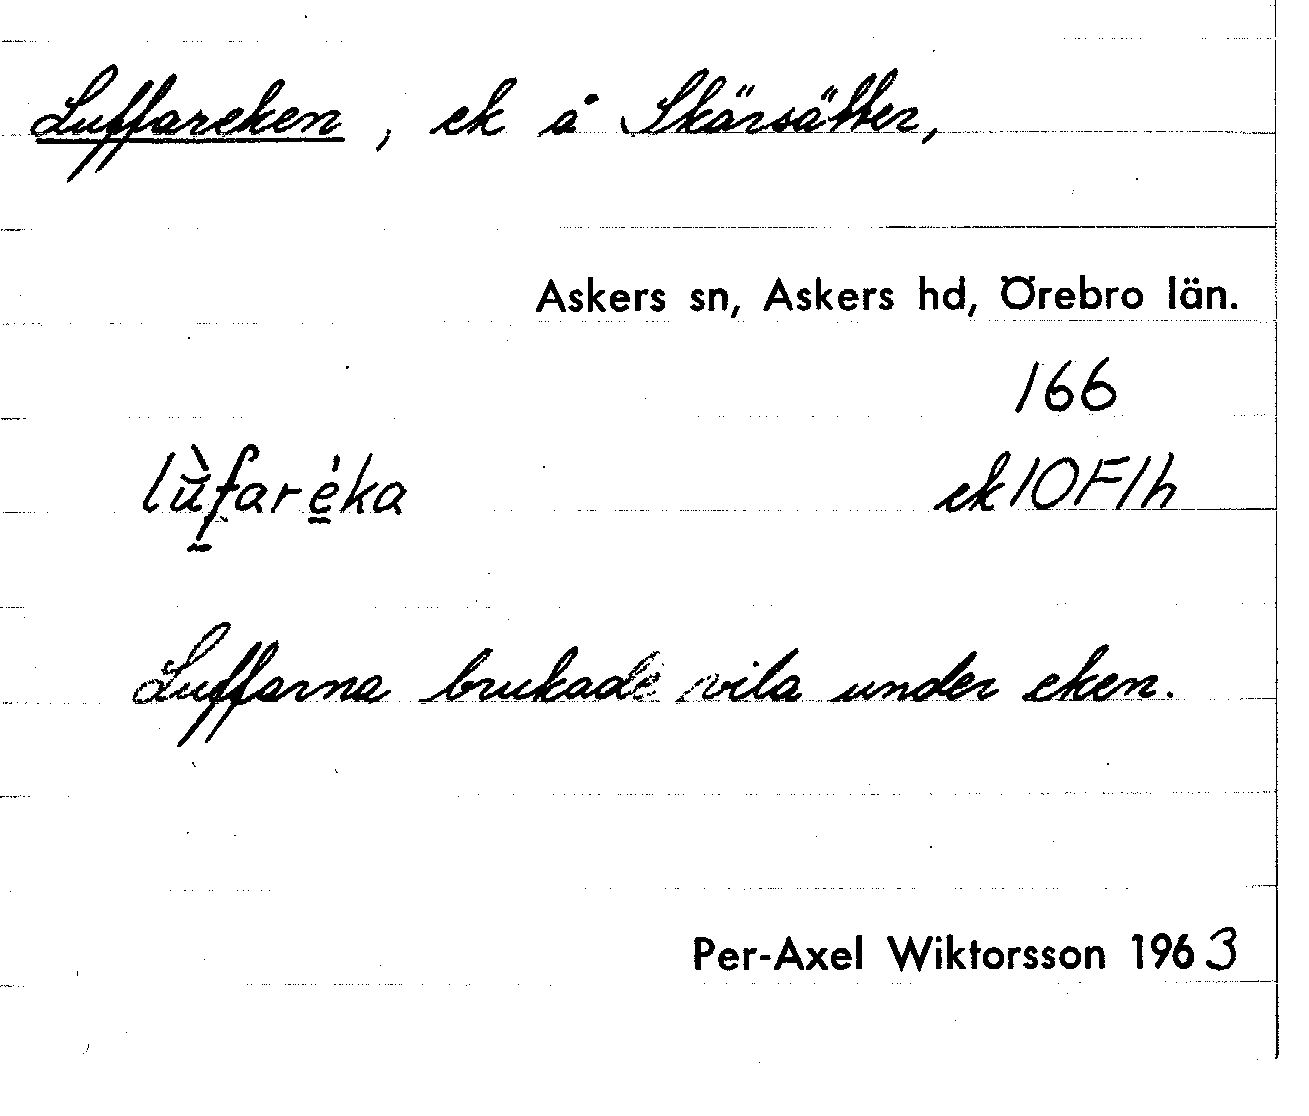 Luffareken, ek å Skärsätter,
Askers sn, Askers hd, Örebro län.
166
lù̄f̱aré̱ka ek 10F1h
Luffarna brukade vila under eken.
Per-Axel Wiktorsson 1963